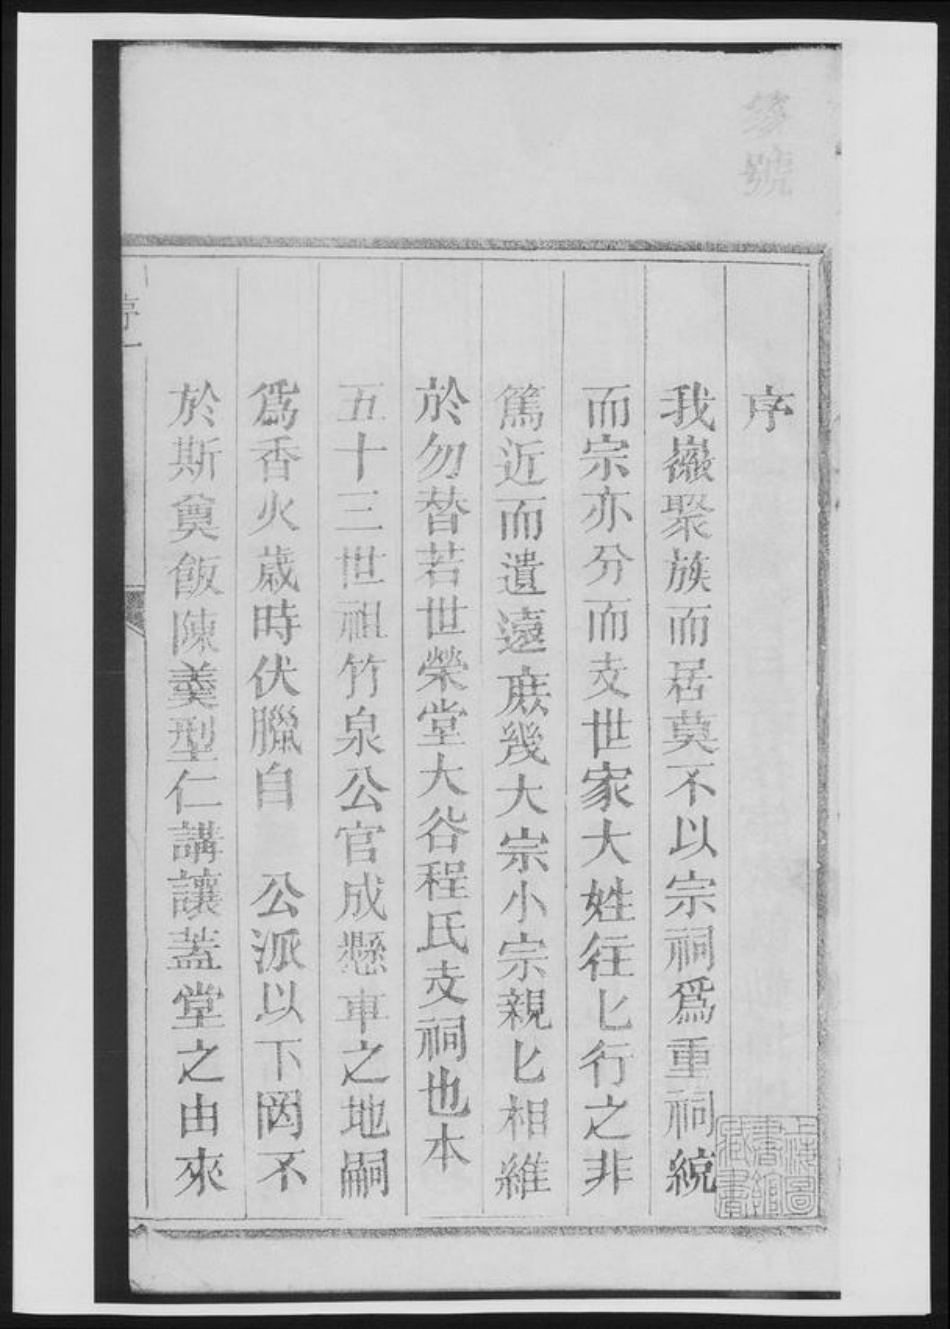 號
序
我嶶聚族而居莫不以宗祠爲重祠統
而宗亦分而支世家大姓徃匕行之非
篤近而遺遠庶幾大宗小宗親匕相維
於勿替若世榮堂大谷程氏支祠也本
五十三世祖竹泉公官成懸車之地嗣
爲香火歲時伏臘自　公派以下罔不
於斯奠飯陳羹型仁講讓蓋堂之由來